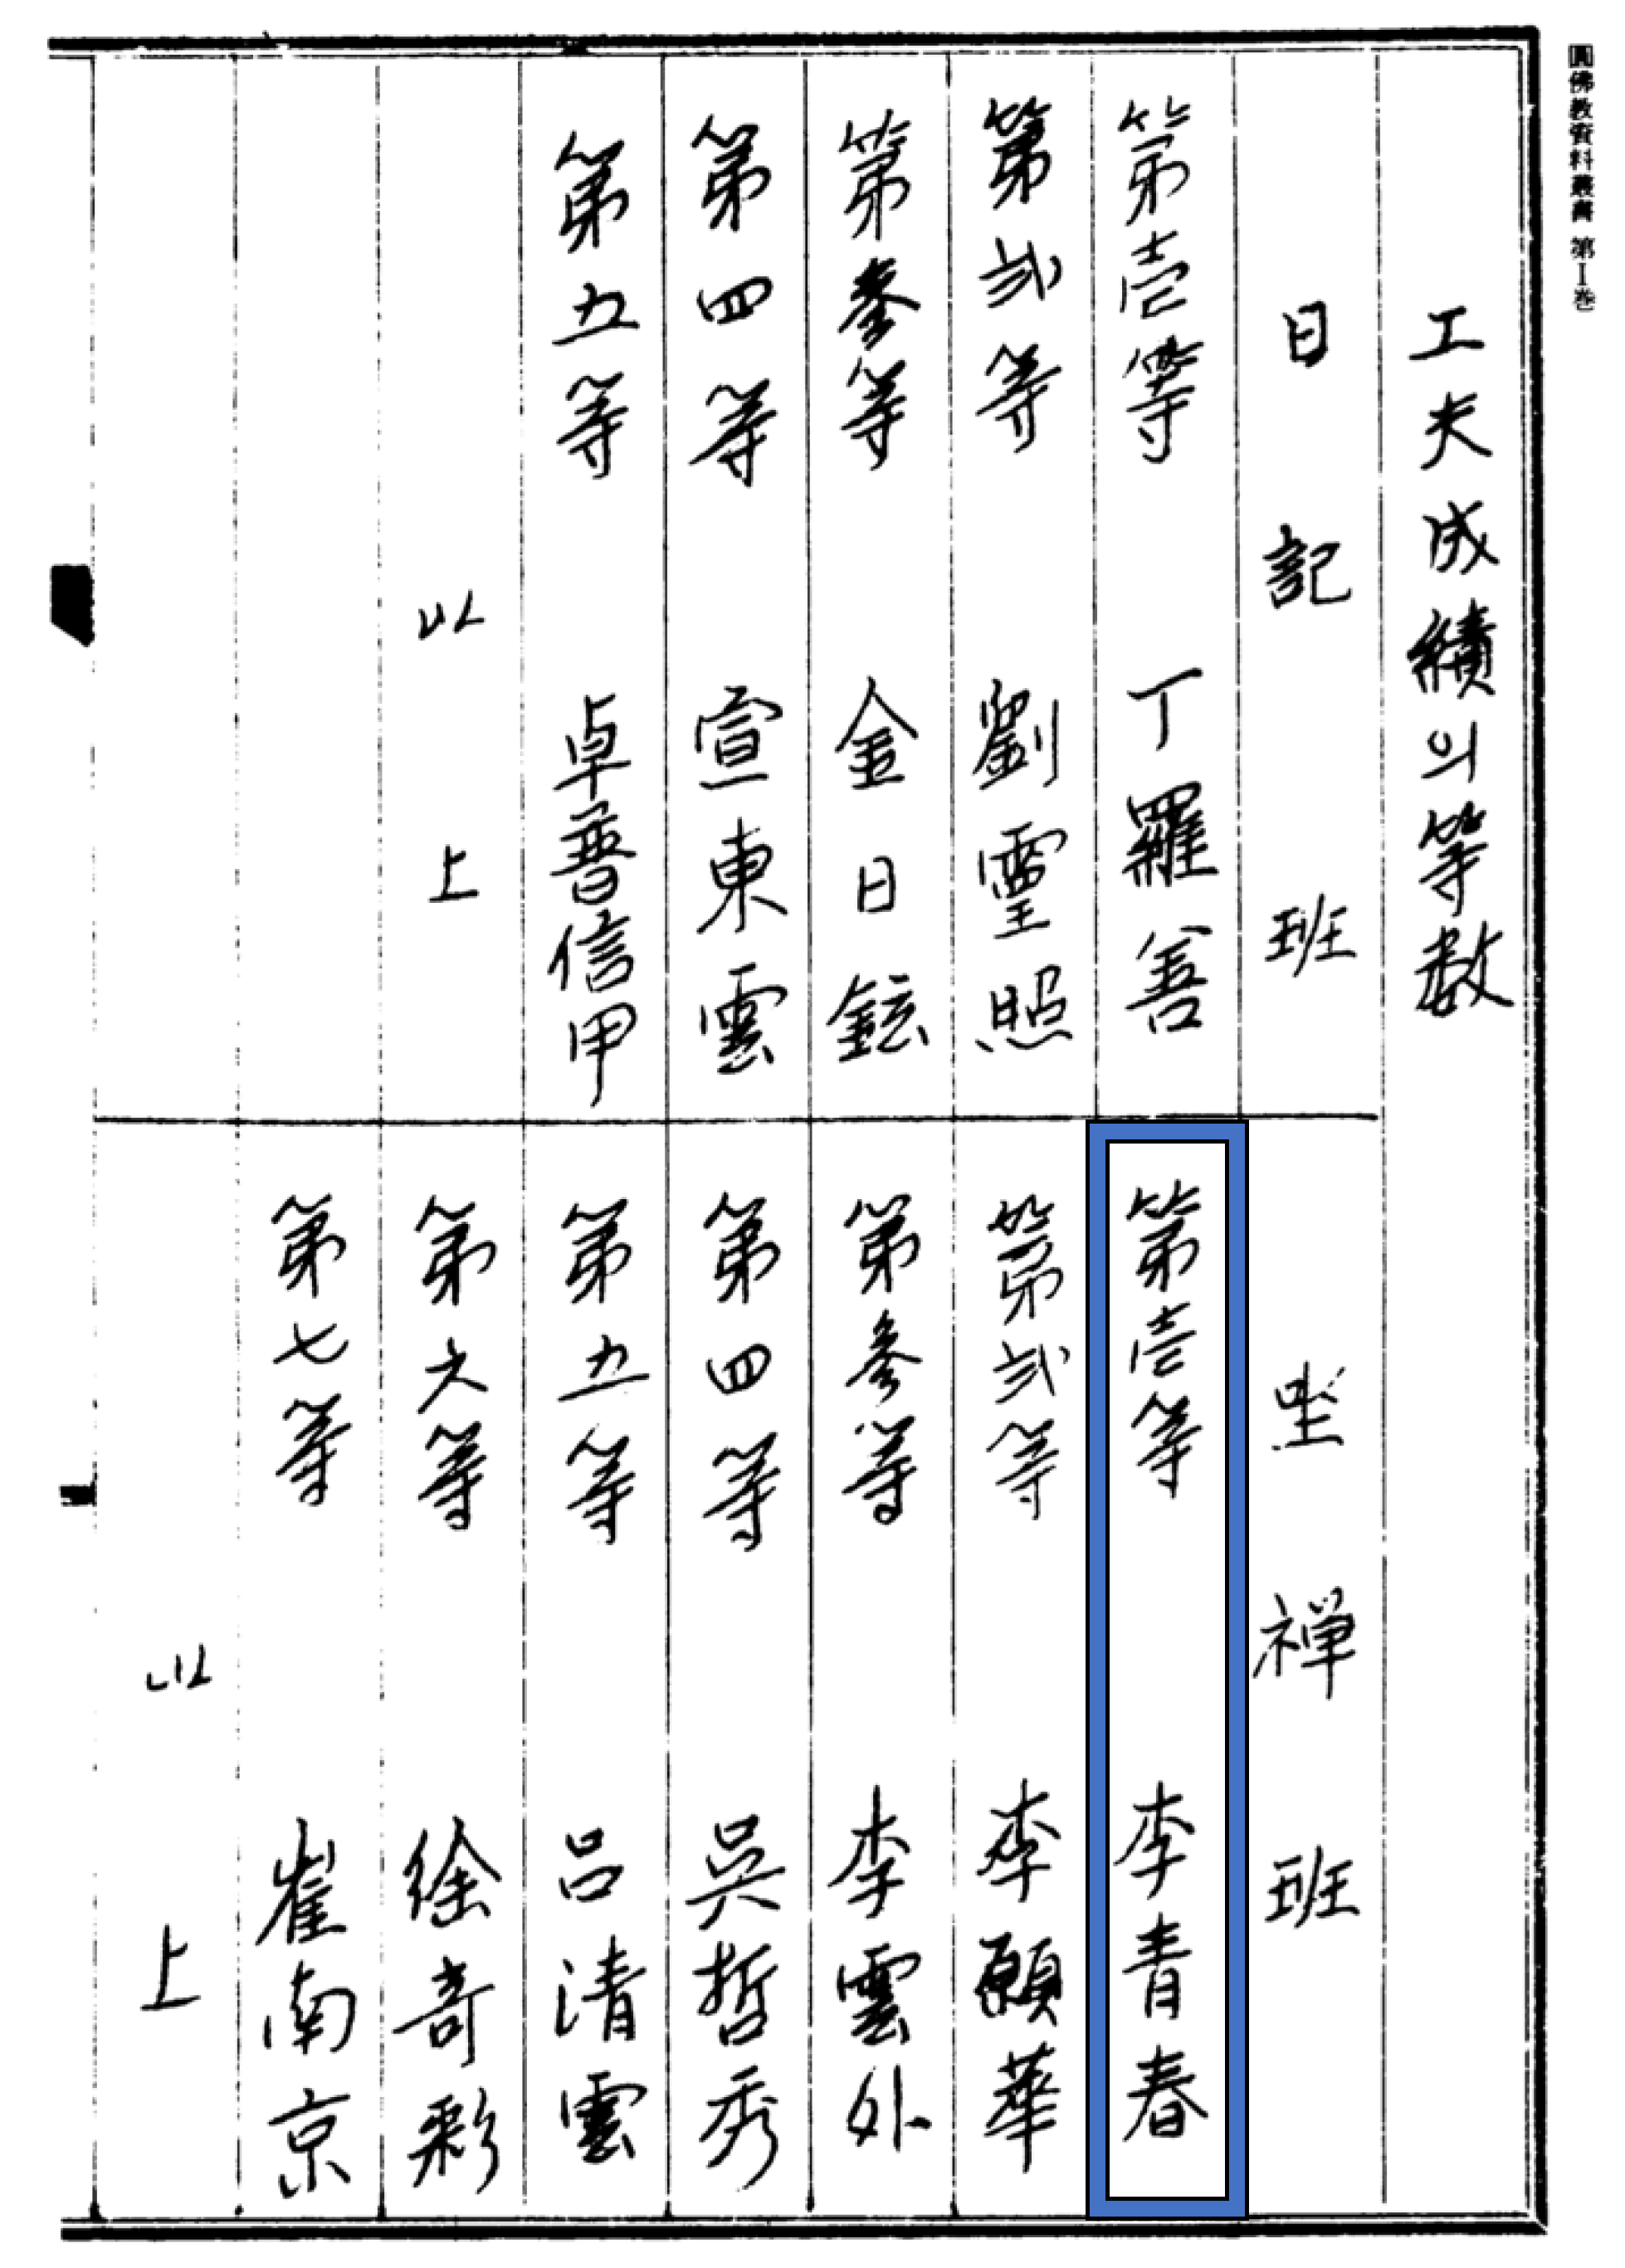 圓佛教資料叢書 第I巻
工夫成績의等数
日記班
第壱等 丁羅善
第弐等 劉灵照
第參等 金日鉉
第四等 宣東雲
第五等 卓普信甲
以上
坐禅班
第壱等 李青春
第弐等 李願華
第参等 李雲外
第四等 吳哲秀
第五等 呂清雲
第六等 徐奇彩
第七等 崔南京
以上